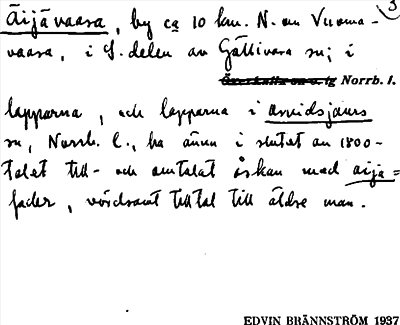 3
Äijävaara, by ca 10 km. N. om Vuoma-
vaara, i S. delen av Gällivara sn; i
Norrb. l.
lapparna, och lapparna i Arvidsjaurs
sn, Norrb. l., ha ännu i slutet av 1800-
talet till- och omtalat åskan med aija =
fader, vördsamt tilltal till äldre man.
EDVIN BRÄNNSTRÖM 1937